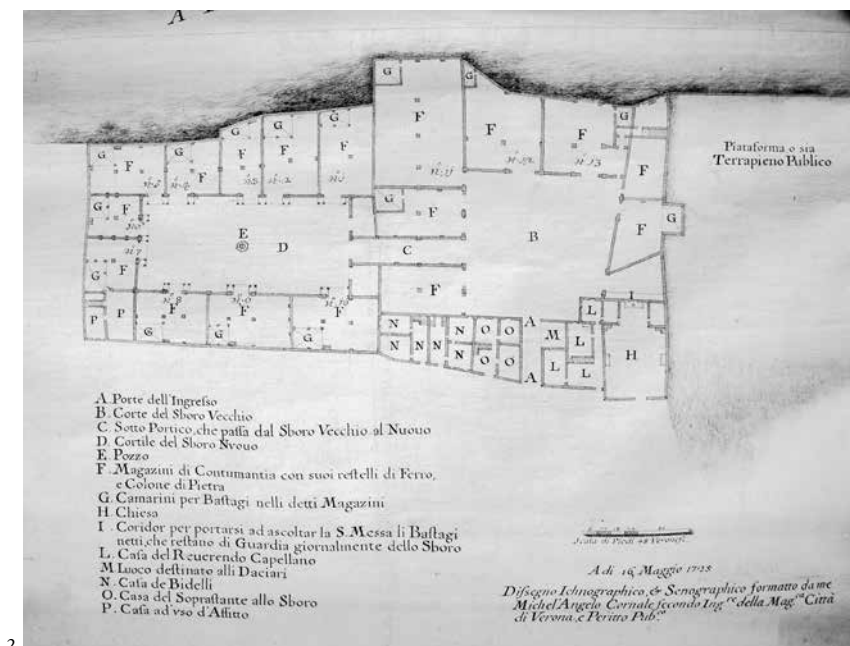 A
Piataforma o sia
Terrapieno Publico
G
G
G
G
G
G
G
G
F
F
F
F
F
F
F
F
F
n.11
n.12
n.13
G
F
G
F
G
F
F
G
E
D
C
B
G
F
F
P
P
F
F
F
G
G
G
N
N
N
N
N
N
O
O
O
O
A
M
A
L
L
L
L
I
H
A. Porte dell'Ingresso
B. Corte del Sboro Vecchio
C Sotto Portico, che passa dal Sboro Vecchio al Nuouo
D. Cortile del Sboro Nvouo
E. Pozzo
F. Magazini di Contumantia con suoi restelli di Ferro,
e Colone di Pietra
G. Camarini per Bastagi nelli detti Magazini
H Chiesa
I. Coridor per portarsi ad ascoltar la S. Messa li Bastagi
netti, che restano di Guardia giornalmente dello Sboro
L. Casa del Reuerendo Capellano
M Luoco destinato alli Daciari
N. Casa de Bidelli
O. Casa del Soprastante allo Sboro
P. Casa ad'vso d'Affitto
Scala di Piedi 48 Veronesi
A di 16 Maggio 1725
Dissegno Ichnographico, & Scenographico formatto da me
Michel'Angelo Cornale secondo Ing.re della Mag.ca Città
di Verona, e Peritto Pub.co
2